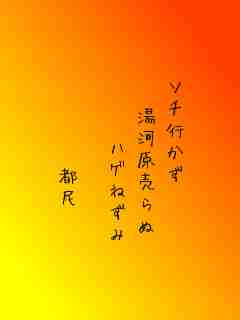 ソチ行かず
湯河原売らぬ
ハゲねずみ
都民